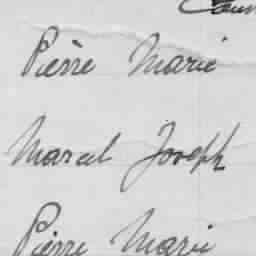 Pierre Marie
Marcel Joseph
Pierre Marie